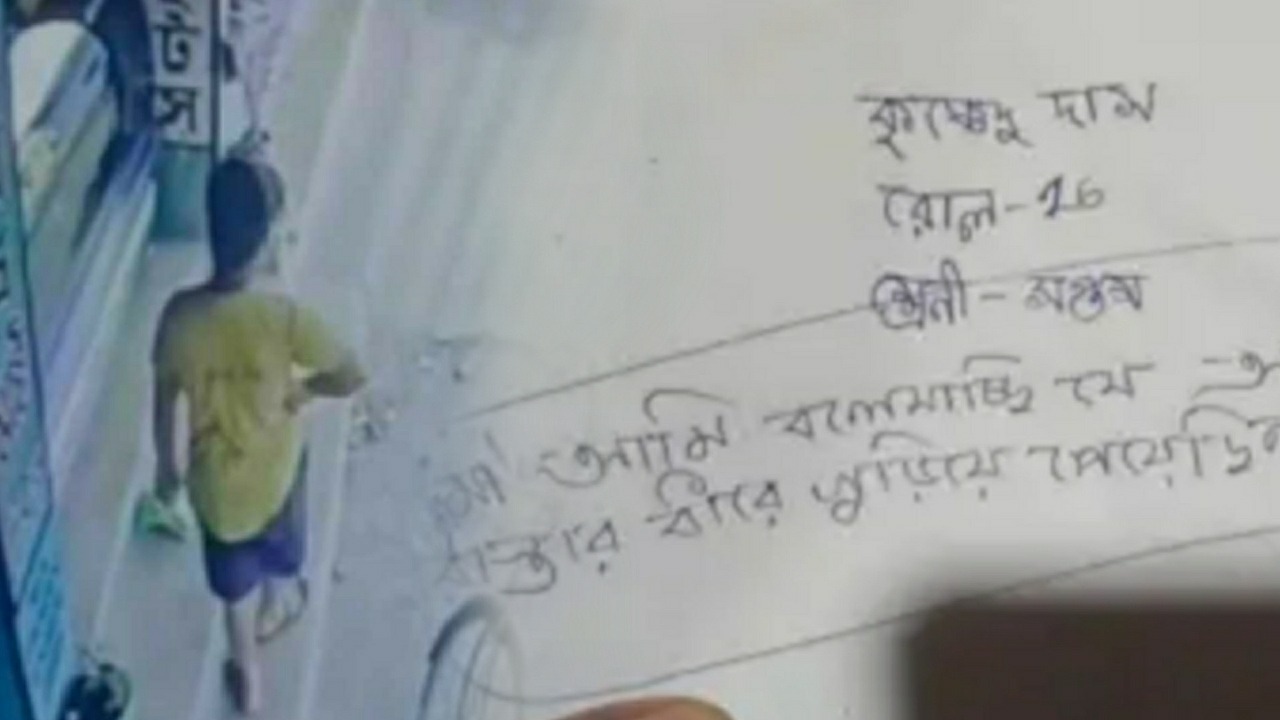 টস
কৃষ্ণেন্দু দাস
রোল-16
শ্রেনী - সপ্তম
মা আমি বলেযাচ্ছি যে
রাস্তার ধারে কুড়িয়ে পেয়েছি